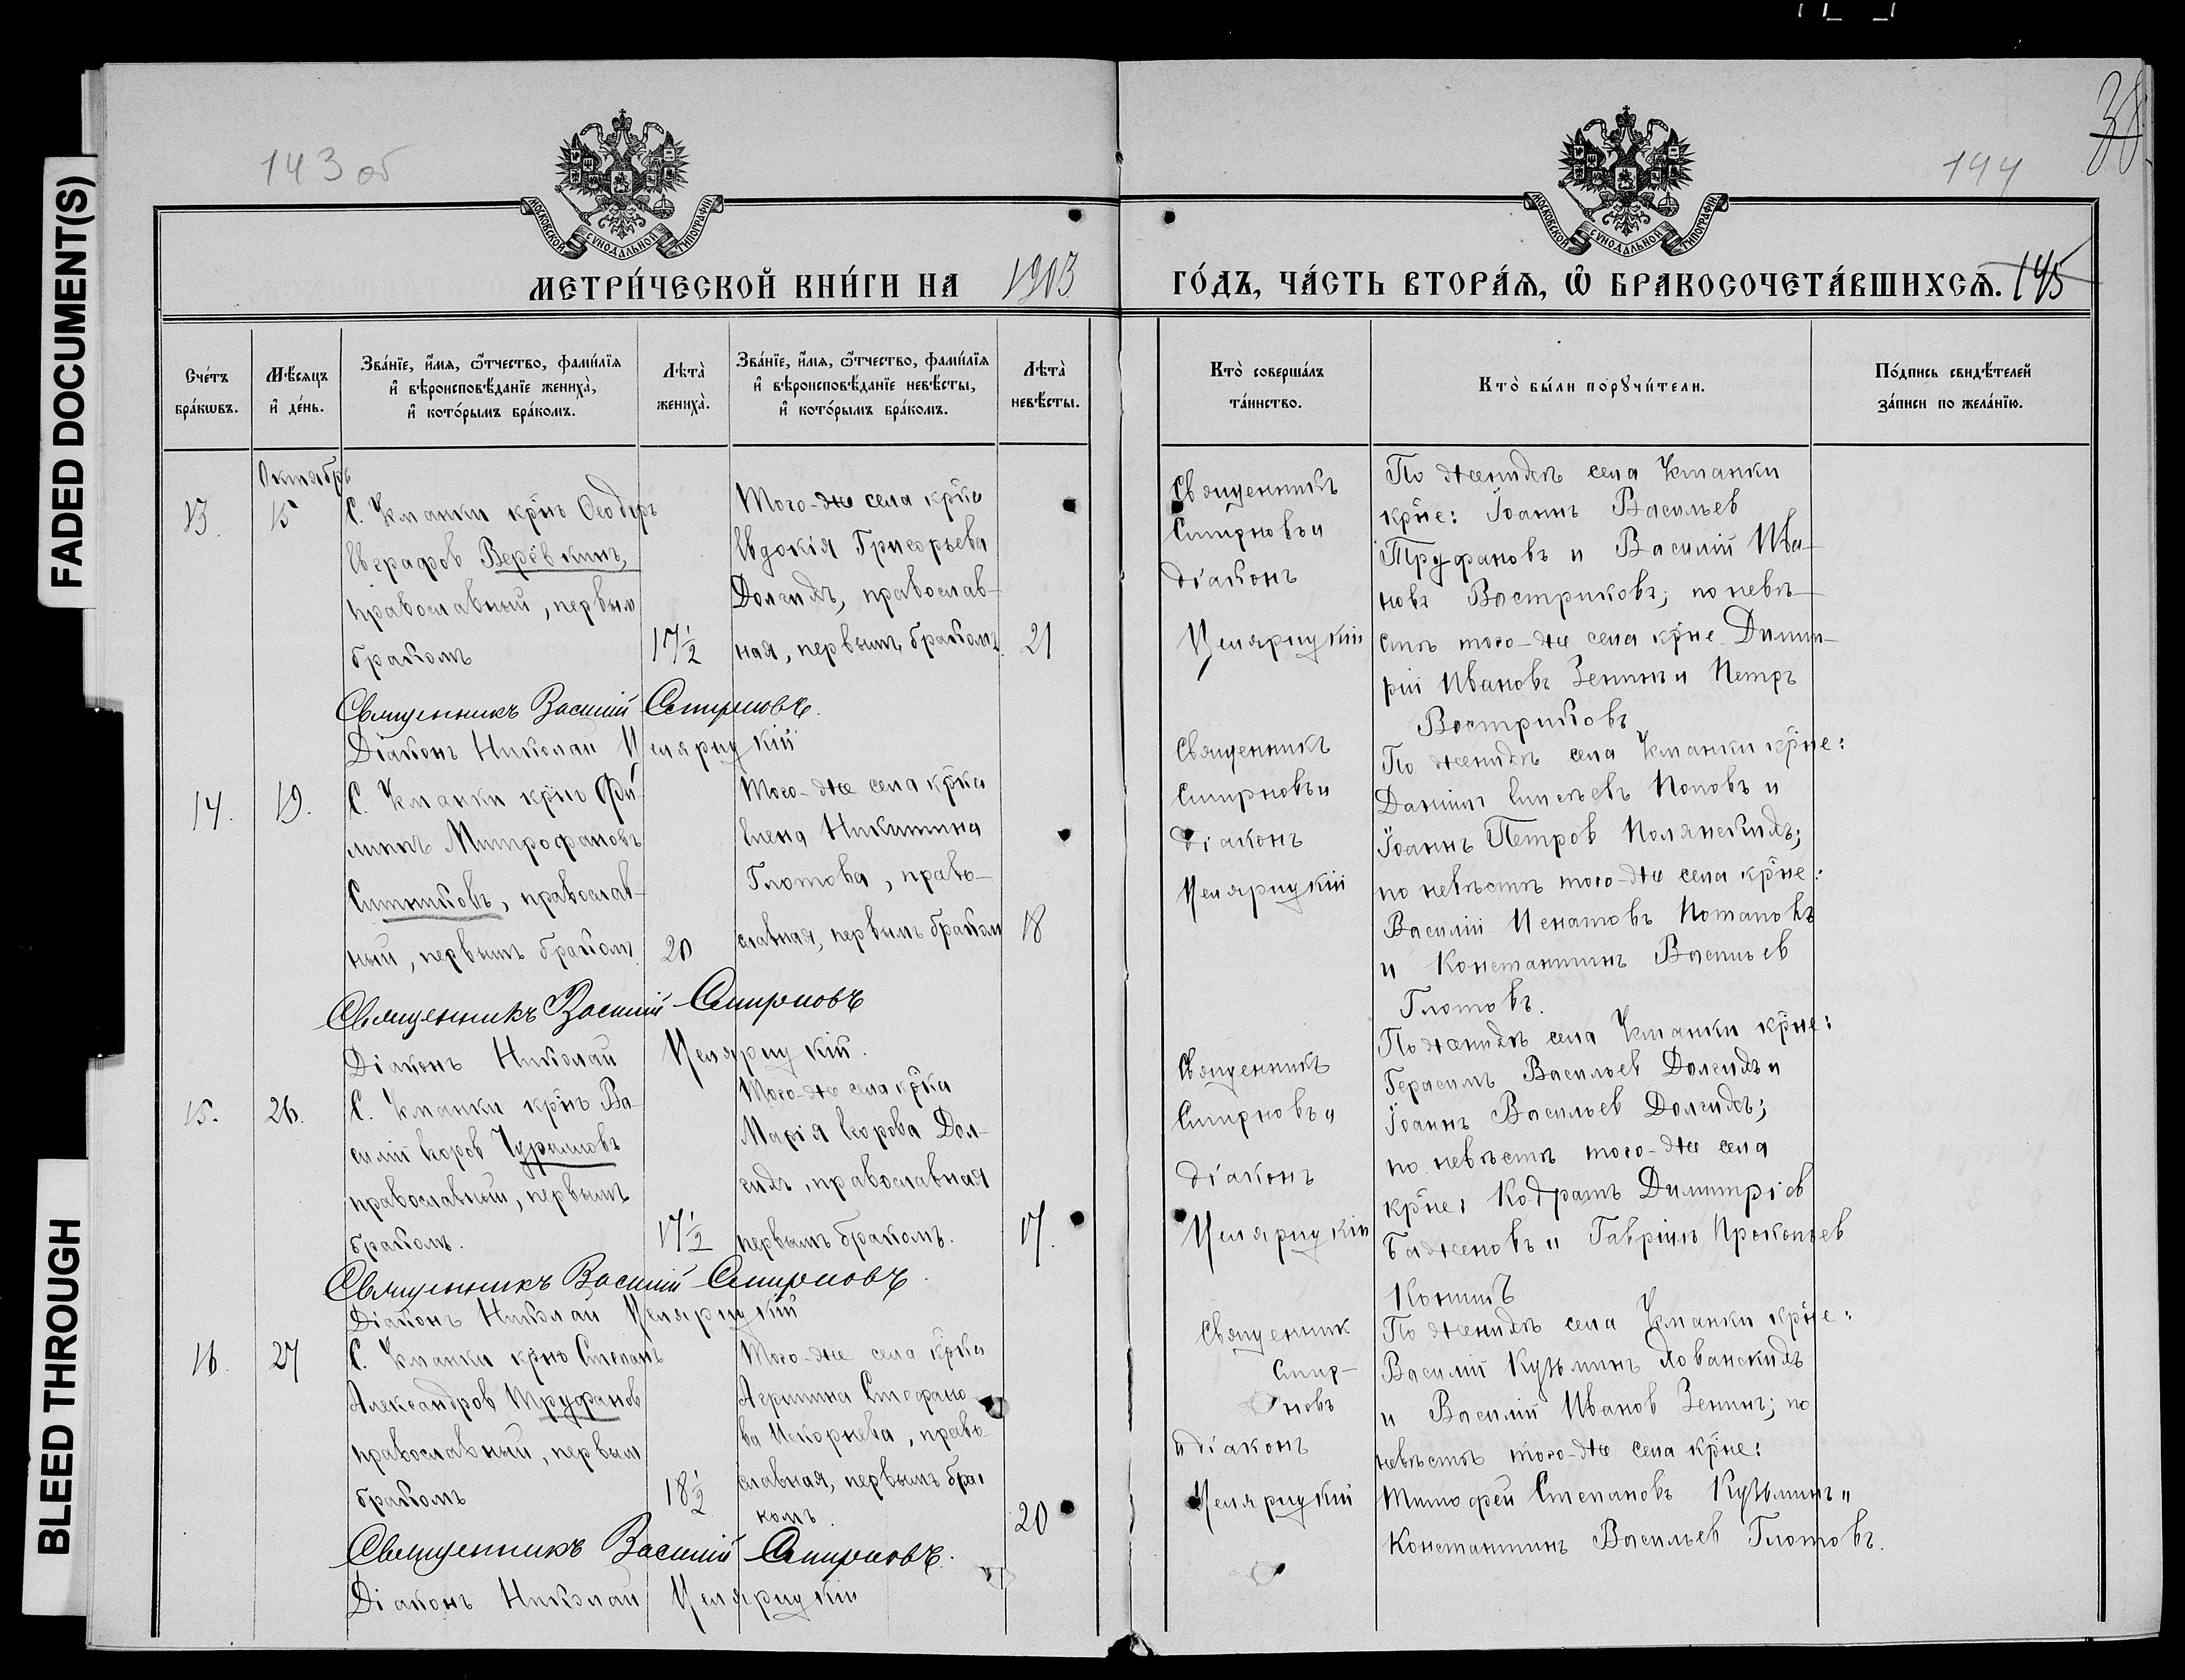 FADED DOCUMENT(S)
BLEED THROUGH
143 об
144
38
МОСКОВСКОЙ СѴНОДАЛЬНОЙ ТИПОГРАФІИ
МОСКОВСКОЙ СѴНОДАЛЬНОЙ ТИПОГРАФІИ
МЕТРИ́ЧЕСКОЙ КНИ́ГИ НА 1903
ГО́ДЪ, ЧА́СТЬ ВТОРА́Ѧ, Ѽ БРАКОСОЧЕТА́ВШИХСѦ. 145
Сче́тъ
бра́кѡвъ.
Мѣ́сяцъ
и҆ де́нь.
Зва́нїе, и҆́мя, ѻ҆́тчество, фами́лїя
и҆ вѣроисповѣ́данїе жениха̀,
и҆ кото́рымъ бра́комъ.
Лѣта̀
жениха̀.
Зва́нїе, и҆́мя, ѻ҆́тчество, фами́лїя
и҆ вѣроисповѣ́данїе невѣ́сты,
и҆ кото́рымъ бра́комъ.
Лѣта̀
невѣ́сты.
Кто̀ соверша́лъ
та́инство.
Кто̀ бы́ли порꙋчи́тели.
По́дпись свидѣ́телей
за́писи по жела́нїю.
Октябрь
13.
15
С. Уманки крнъ Ѳеодоръ
Евграфов Верёвкинъ,
православный, первым
бракомъ
17½
Того-же села крка
Евдокія Григорьева
Долгихъ, православ-
ная, первымъ бракомъ.
21
Священникъ
Смирновъ и
діаконъ
Целярицкій
По женихѣ села Уманки
крне: Іоаннъ Васильев
Труфановъ и Василій Ива-
новъ Востриковъ; по невѣ-
стѣ того-же села крне Димит-
рій Ивановъ Зенинъ и Петръ
Востриковъ
Священникъ Василій Смирновъ.
Діаконъ Николай Целярицкій
14.
19.
С. Уманки крнъ Фи-
липпъ Митрофановъ
Ситниковъ, православ-
ный, первымъ бракомъ
20
Того-же села крка
Елена Никитина
Глотова, право-
славная, первымъ браком
18
Священникъ
Смирновъ и
діаконъ
Целярицкій
По женихѣ села Уманки крне:
Даніилъ Поповъ и
Іоаннъ Петров Полянскихъ;
по невѣстѣ того-же села крне:
Василій Игнатовъ Потаповъ
и Константинъ Васильев
Глотовъ.
Священникъ Василій Смирновъ
Діаконъ Николай Целярицкій.
15.
26.
С. Уманки крнъ Ва-
силій Егоров Чуриловъ
православный, первымъ
бракомъ.
17½
Того-же села крка
Марія Егорова Дол-
гихъ, православная
первымъ бракомъ.
17.
Священникъ
Смирновъ и
діаконъ
Целярицкій
По женихѣ села Уманки крне:
Герасимъ Васильев Долгихъ и
Іоаннъ Васильев Долгихъ;
по невѣстѣ того-же села
крне: Кодратъ Димитріев
Баженовъ и Гавріилъ Прокопьев
Священникъ Василій Смирновъ.
Діаконъ Николай Целярицкій
16.
27
С. Уманки крнъ Степанъ
Александров Труфанов
православный, первым
бракомъ
18½
Того-же села крка
Агриппина Стефано
ва Искорнева, право-
славная, первымъ бра-
комъ.
20
Священник
Смир-
новъ
и діаконъ
Целярицкій
По женихѣ села Уманки крне:
Василій Кузьминъ Хованскихъ
и Василій Иванов Зенинъ; по
невѣстѣ того-же села крне:
Тимофей Степановъ Кузьминъ и
Константинъ Васильев Глотовъ.
Священникъ Василій Смирновъ.
Діаконъ Николай Целярицкій